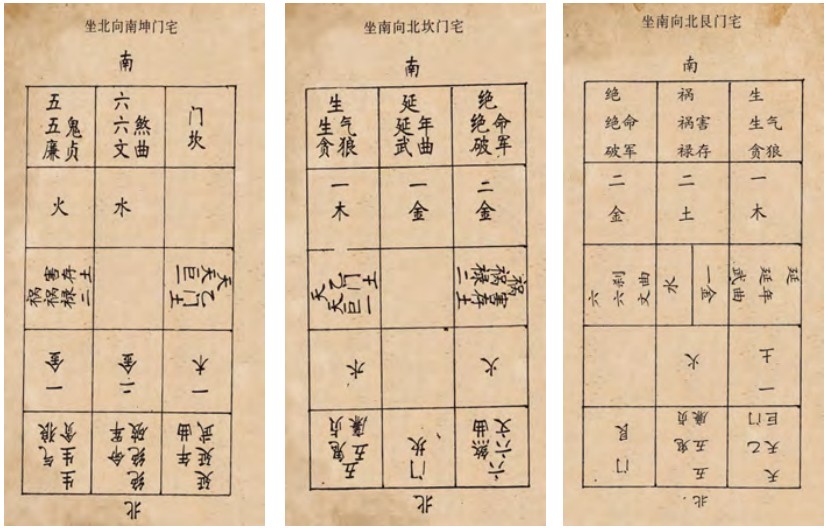 坐北向南坤门宅
南
五
五鬼
廉贞
六
六煞
文曲
门
坎
火
水
祸
祸害
禄存
二土
天
天乙
巨门
一土
一
金
二
金
一
木
生
生气
贪狼
绝
绝命
破军
延
延年
武曲
北
坐南向北坎门宅
南
生
生气
贪狼
延
延年
武曲
绝
绝命
破军
一
木
一
金
二
金
天
天乙
巨门
一土
祸
祸害
禄存
二土
水
火
五
五鬼
廉贞
门
坎
六
六煞
文曲
北
坐南向北艮门宅
南
绝
绝命
破军
祸
祸害
禄存
生
生气
贪狼
二
金
二
土
一
木
六
六刹
文曲
水
一金
延
延年
武曲
火
一
土
门
艮
五
五鬼
廉贞
天
天乙
巨门
北